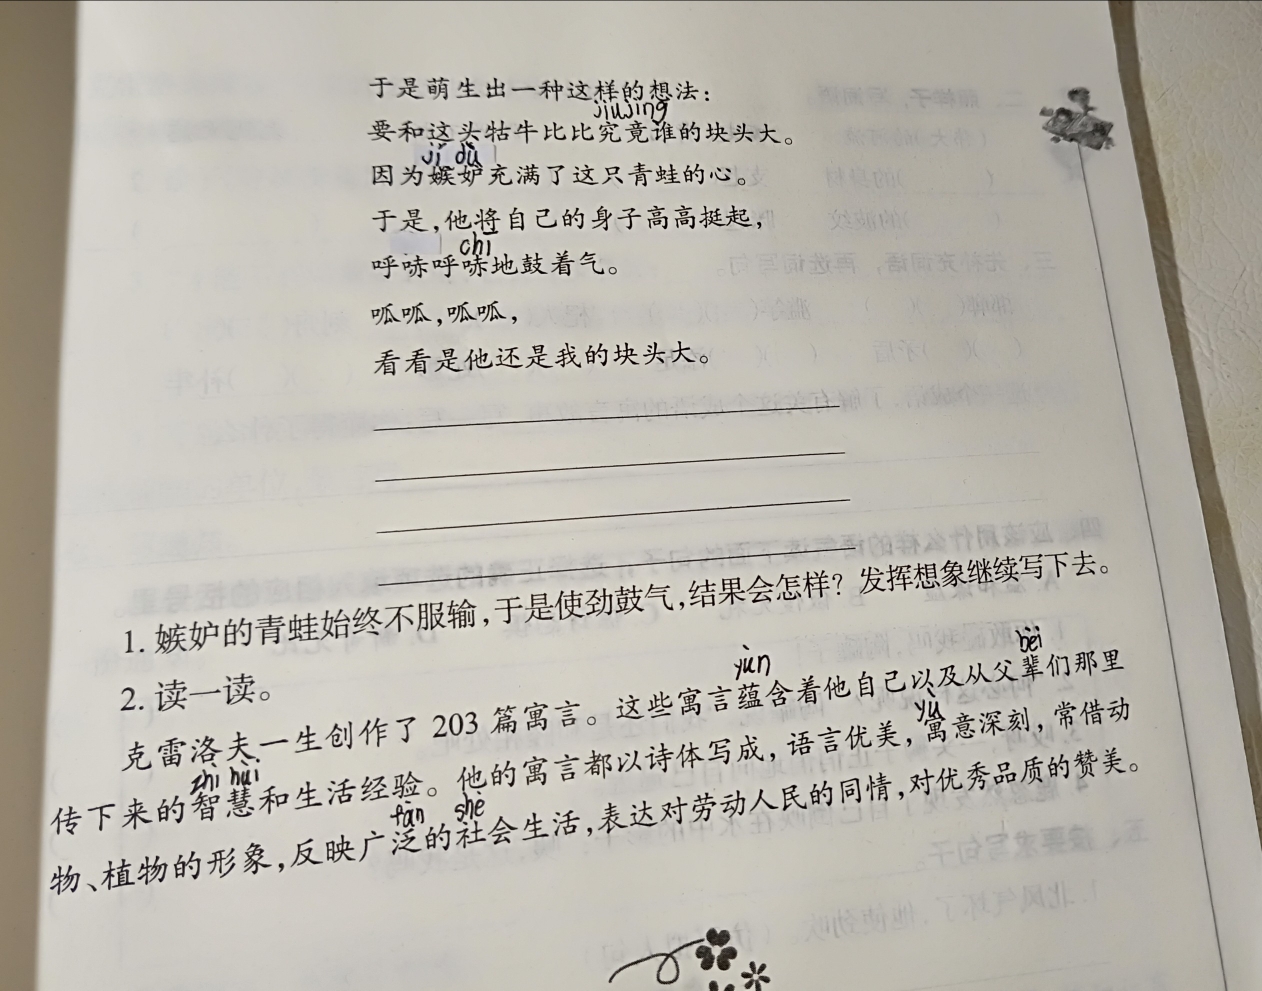 于是萌生出一种这样的想法：
jiūjìng
要和这头牯牛比比究竟谁的块头大。
jí dù
因为嫉妒充满了这只青蛙的心。
于是，他将自己的身子高高挺起，
chī
呼哧呼哧地鼓着气。
呱呱，呱呱，
看看是他还是我的块头大。
1. 嫉妒的青蛙始终不服输，于是使劲鼓气，结果会怎样？发挥想象继续写下去。
2. 读一读。
yùn bèi
克雷洛夫一生创作了 203 篇寓言。这些寓言蕴含着他自己以及从父辈们那里
zhì huì yù
传下来的智慧和生活经验。他的寓言都以诗体写成，语言优美，寓意深刻，常借动
fàn shè
物、植物的形象，反映广泛的社会生活，表达对劳动人民的同情，对优秀品质的赞美。